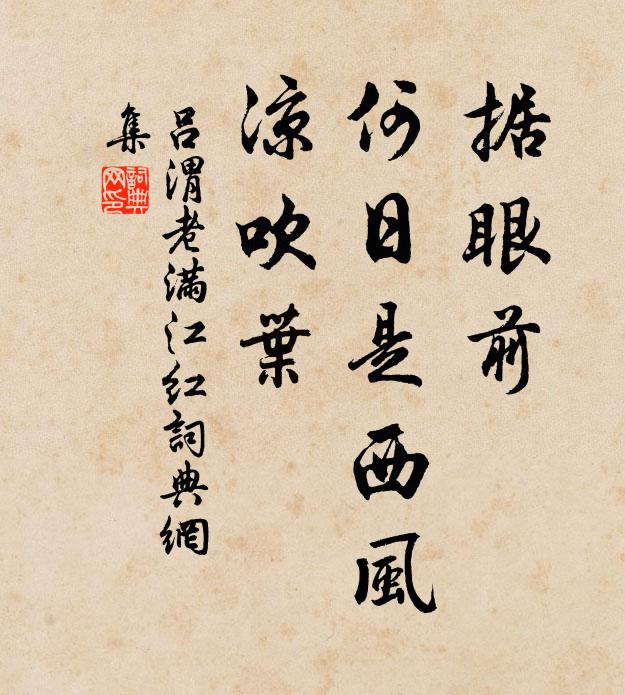 据眼前
何日是西風
涼吹葉
吕渭老满江红詞典網
集
詞典
网印